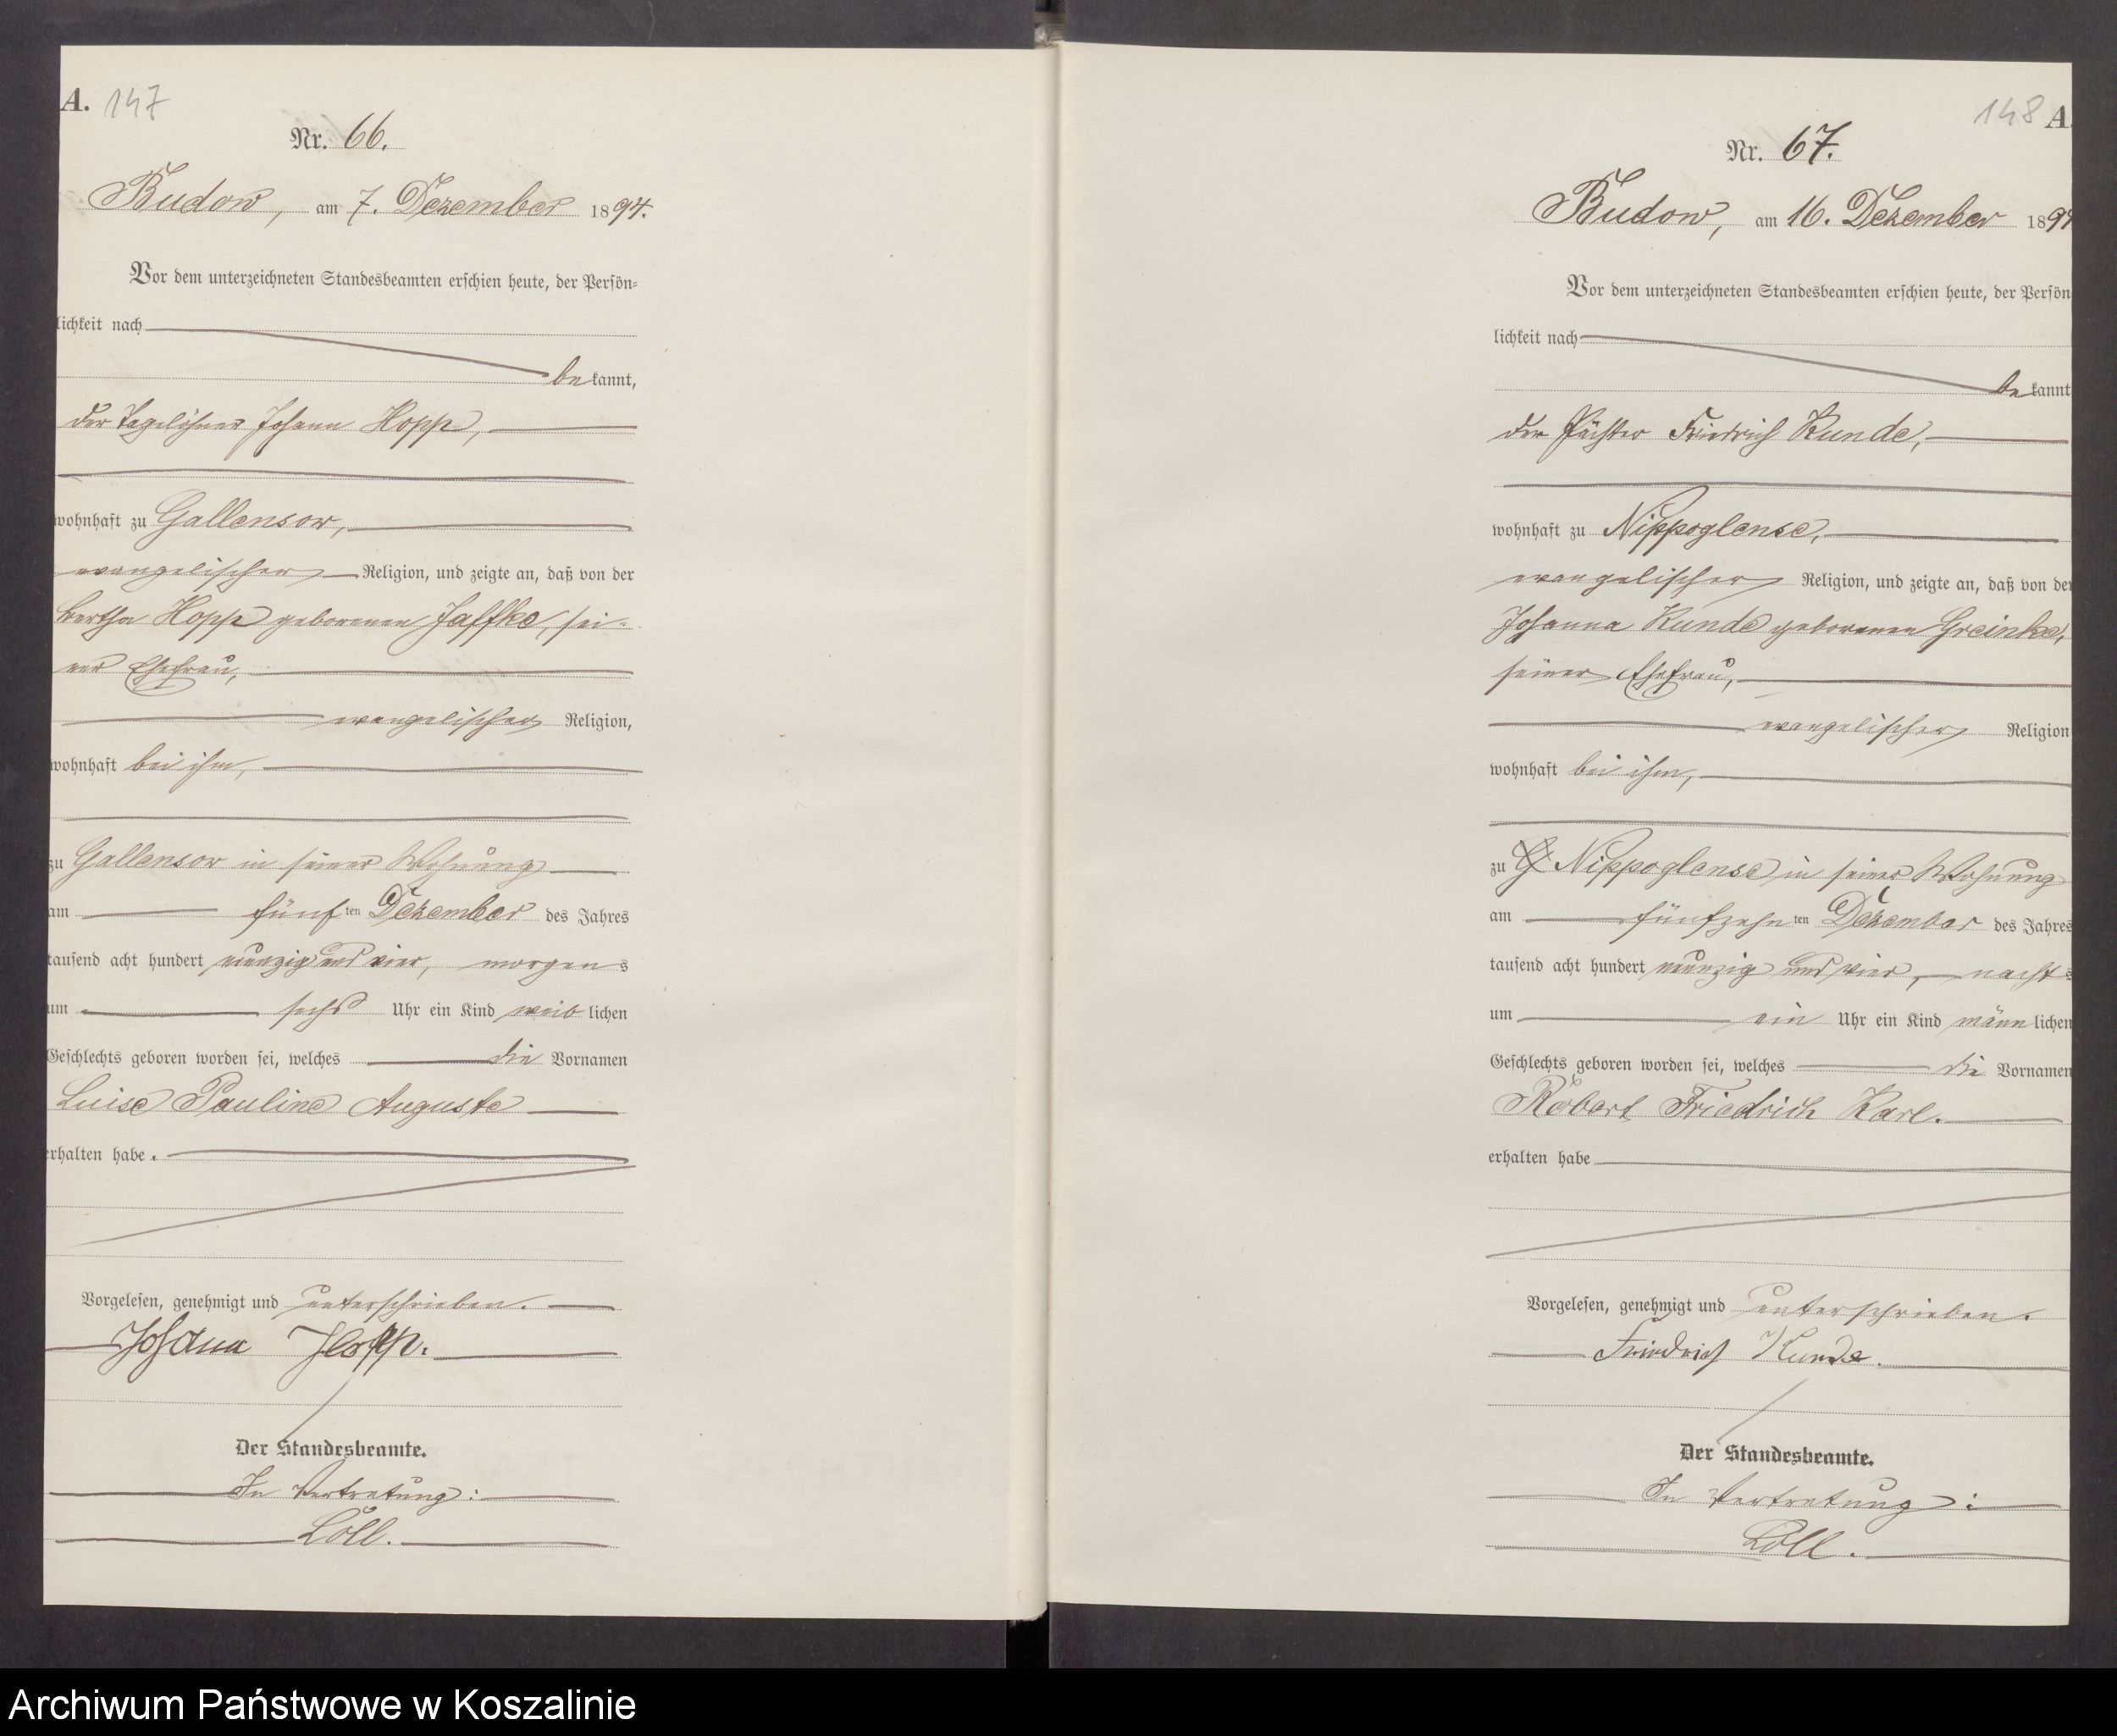 A. 147
Nr. 66.
Budow, am 7. Dezember 1894.
Vor dem unterzeichneten Standesbeamten erschien heute, der Persön-
lichkeit nach
bekannt,
der Tagelöhner Johann Hopp,
wohnhaft zu Gallensow,
evangelischer Religion, und zeigte an, daß von der
Bertha Hopp geborenen Jaffke, sei-
ner Ehefrau,
evangelischer Religion,
wohnhaft bei ihm,
zu Gallensow in seiner Wohnung
am fünften Dezember des Jahres
tausend acht hundert neunzig und vier, morgens
um sechs Uhr ein Kind weiblichen
Geschlechts geboren worden sei, welches die Vornamen
Luise Pauline Auguste
erhalten habe.
Vorgelesen, genehmigt und unterschrieben.
Johann Hopp.
Der Standesbeamte.
In Vertretung:
Löll.
148 A
Nr. 67.
Budow, am 16. Dezember 1894
Vor dem unterzeichneten Standesbeamten erschien heute, der Persön
lichkeit nach
bekannt
der Pächter Friedrich Kunde,
wohnhaft zu Nippoglense,
evangelischer Religion, und zeigte an, daß von der
Johanna Kunde geborenen Greinke,
seiner Ehefrau,
evangelischer Religion
wohnhaft bei ihm,
zu G Nippoglense in seiner Wohnung
am fünfzehnten Dezember des Jahres
tausend acht hundert neunzig und vier, nachts
um ein Uhr ein Kind männlichen
Geschlechts geboren worden sei, welches die Vornamen
Robert Friedrich Karl.
erhalten habe
Vorgelesen, genehmigt und unterschrieben.
Friedrich Kunde.
Der Standesbeamte.
In Vertretung:
Löll.
Archiwum Państwowe w Koszalinie